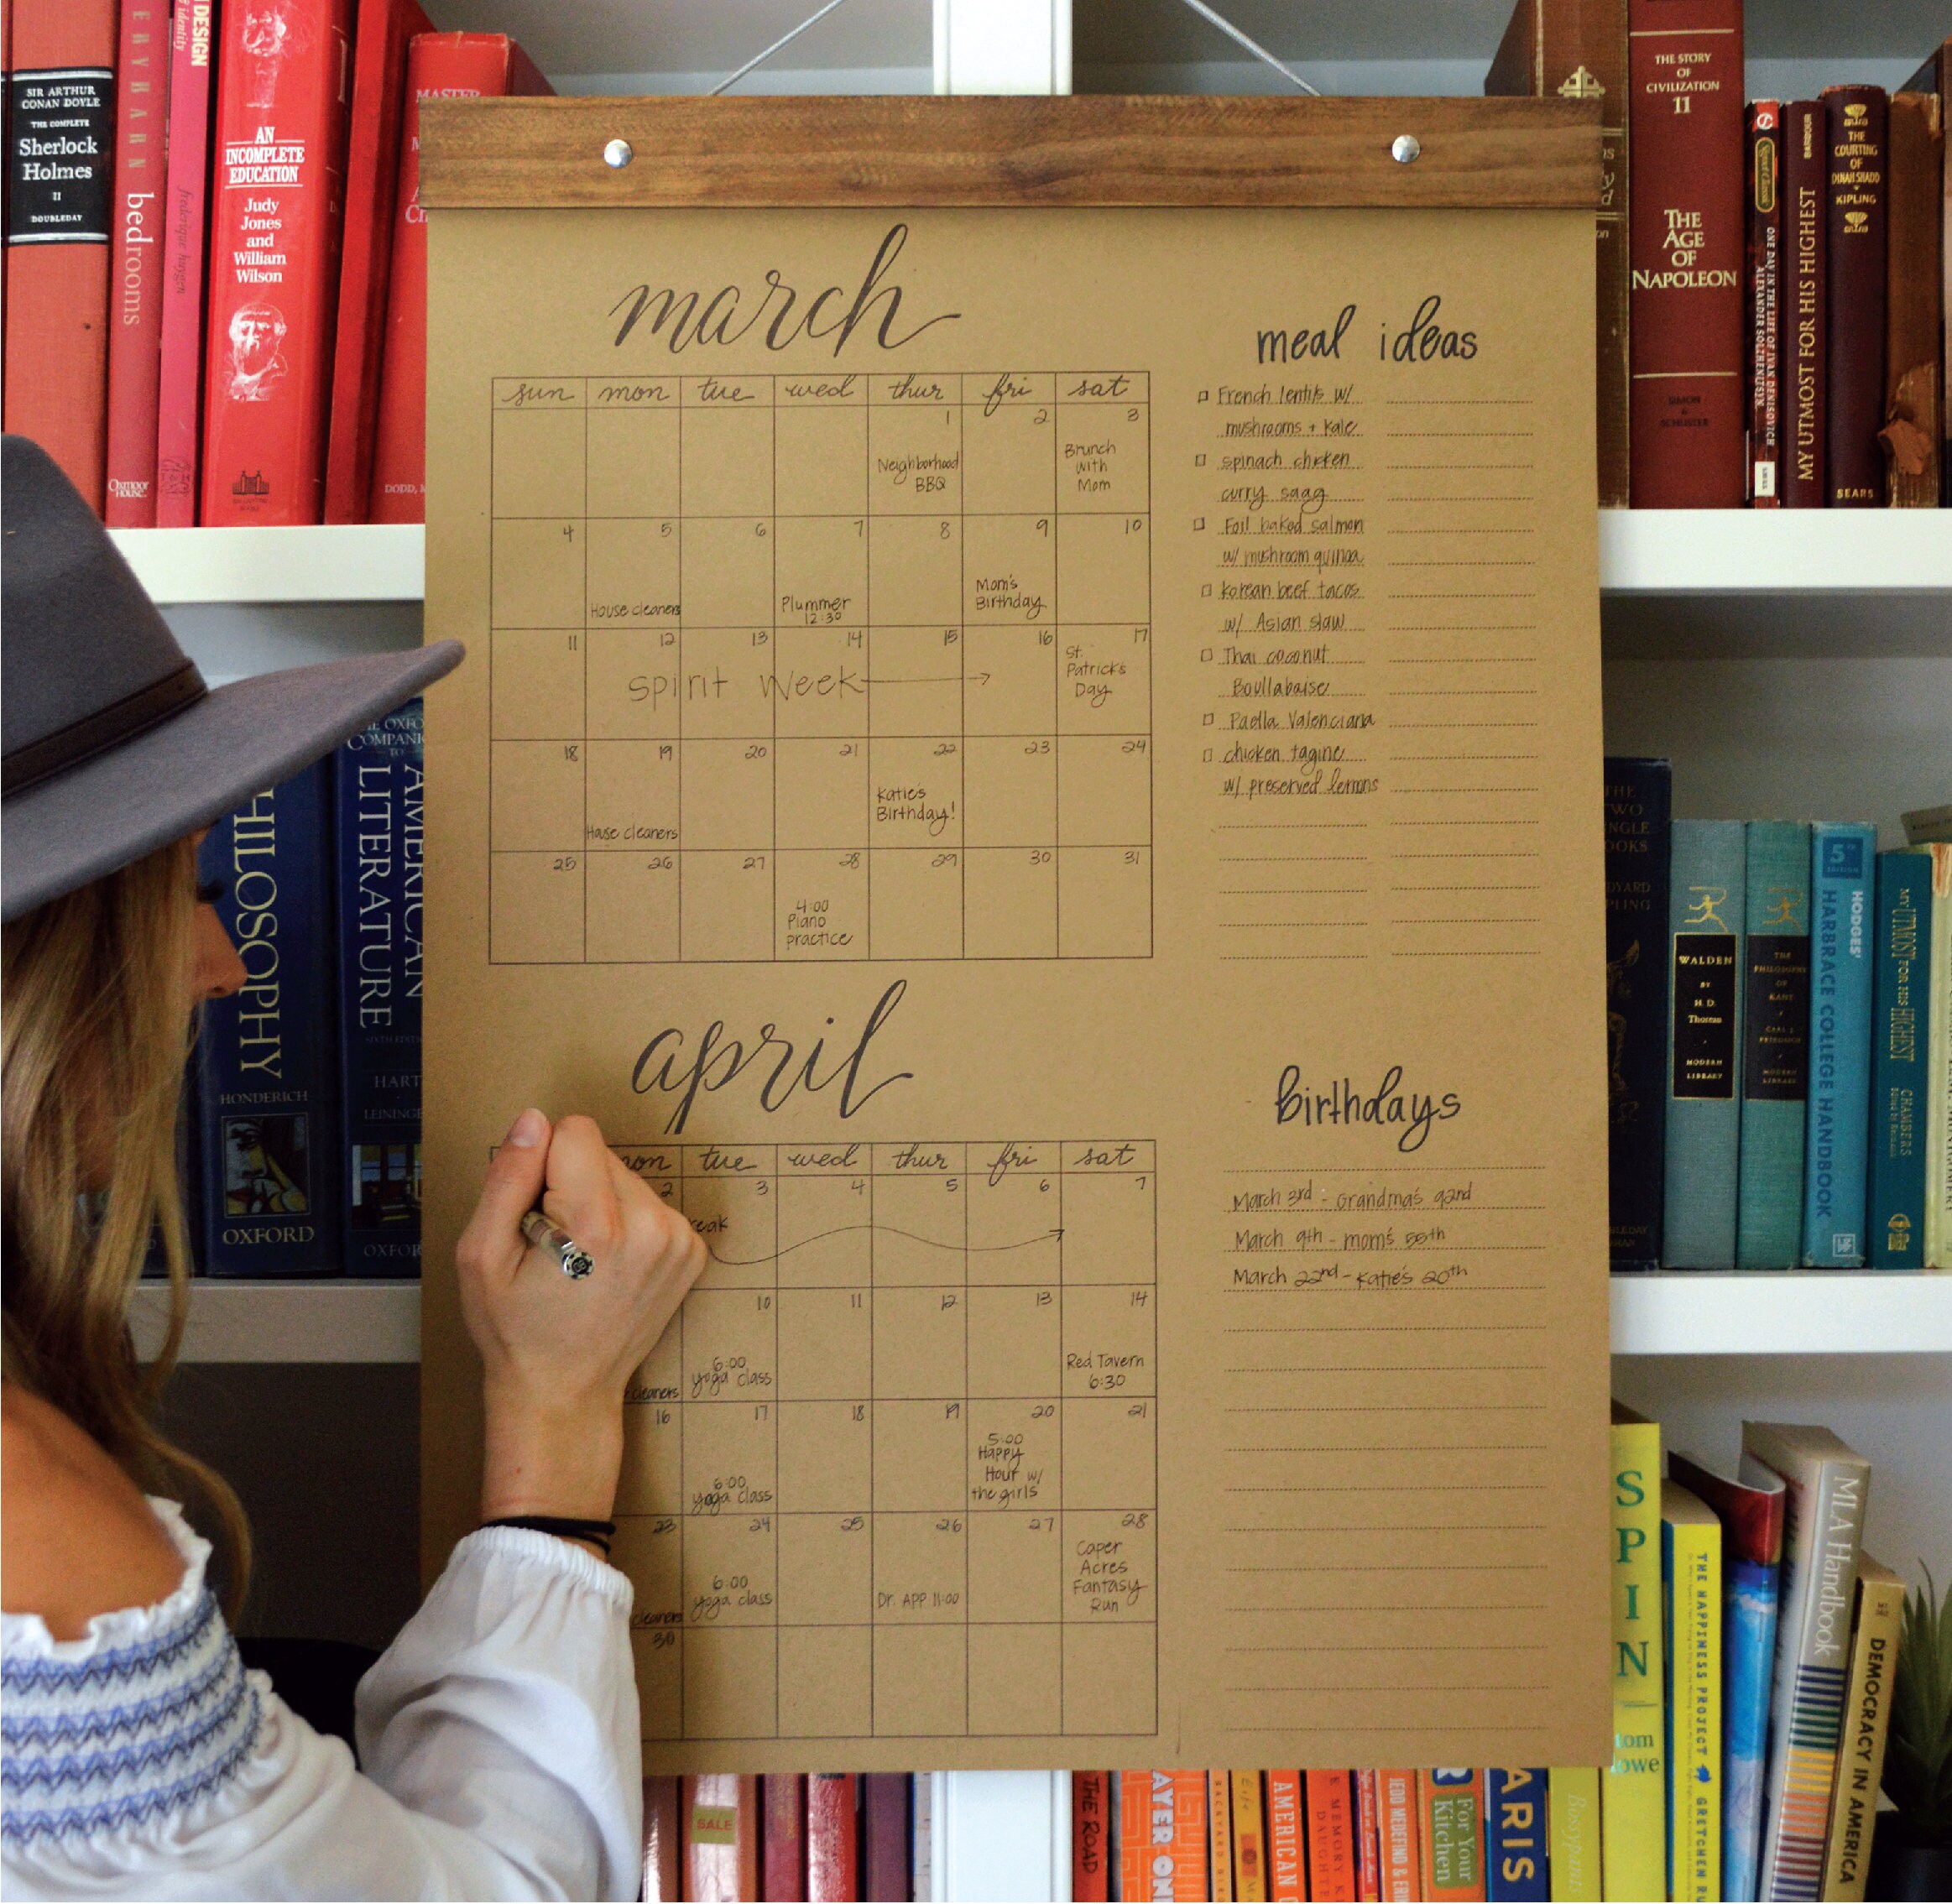 SIR ARTHUR
CONAN DOYLE
THE COMPLETE
Sherlock
Holmes
II
DOUBLEDAY
bedrooms
Oxmoor
House.
DESIGN
AN
INCOMPLETE
EDUCATION
Judy
Jones
and
William
Wilson
MASTER
DODD,
THE STORY
OF
CIVILIZATION
11
THE
AGE
OF
NAPOLEON
SIMON
&
SCHUSTER
Signet Classic
ONE DAY IN THE LIFE OF IVAN DENISOVICH
ALEXANDER SOLZHENITSYN
BARBOUR
MY UTMOST FOR HIS HIGHEST
THE
COURTING
OF
DINAH SHADD
KIPLING
SEARS
march
sun mon tue wed thur fri sat
1 2 3
Neighborhood
BBQ
Brunch
with
Mom
4 5 6 7 8 9 10
House cleaners
Plummer
12:30
Mom's
Birthday
11 12 13 14 15 16 17
Spirit Week
St.
Patrick's
Day
18 19 20 21 22 23 24
House cleaners
Katie's
Birthday!
25 26 27 28 29 30 31
4:00
Piano
practice
meal ideas
French lentils w/
mushrooms + kale
spinach chicken
curry saag
Foil baked salmon
w/ mushroom quinoa
korean beef tacos
w/ Asian slaw
Thai coconut
Boullabaise
Paella Valenciana
chicken tagine
w/ preserved lemons
april
mon tue wed thur fri sat
2 3 4 5 6 7
reak
10 11 12 13 14
cleaners
6:00
yoga class
Red Tavern
6:30
16 17 18 19 20 21
6:00
yoga class
5:00
Happy
Hour w/
the girls
23 24 25 26 27 28
cleaners
6:00
yoga class
Dr. APP 11:00
Caper
Acres
Fantasy
Run
30
birthdays
March 3rd - Grandma's 92nd
March 9th - mom's 55th
March 22nd - Katie's 20th
PHILOSOPHY
HONDERICH
OXFORD
THE OXFO
COMPANI
TO
AMERICAN
LITERATURE
SIXTH EDITION
HART
LEININGE
OXFO
THE
TWO
NGLE
OOKS
WALDEN
BY
H. D.
Thoreau
MODERN
LIBRARY
THE
PHILOSOPHY
OF
KANT
CARL J.
FRIEDRICH
MODERN
LIBRARY
5TH
EDITION
HODGES'
HARBRACE COLLEGE HANDBOOK
MY UTMOST FOR HIS HIGHEST
CHAMBERS
SPIN
tom
lowe
THE HAPPINESS PROJECT
GRETCHEN RU
MLA Handbook
DEMOCRACY IN AMERICA
SALE
THE ROAD
AYER ON
BACKYARD BI
AMERICAN
MEMORY K
DAUGHTE
For Your
Kitchen
ARIS